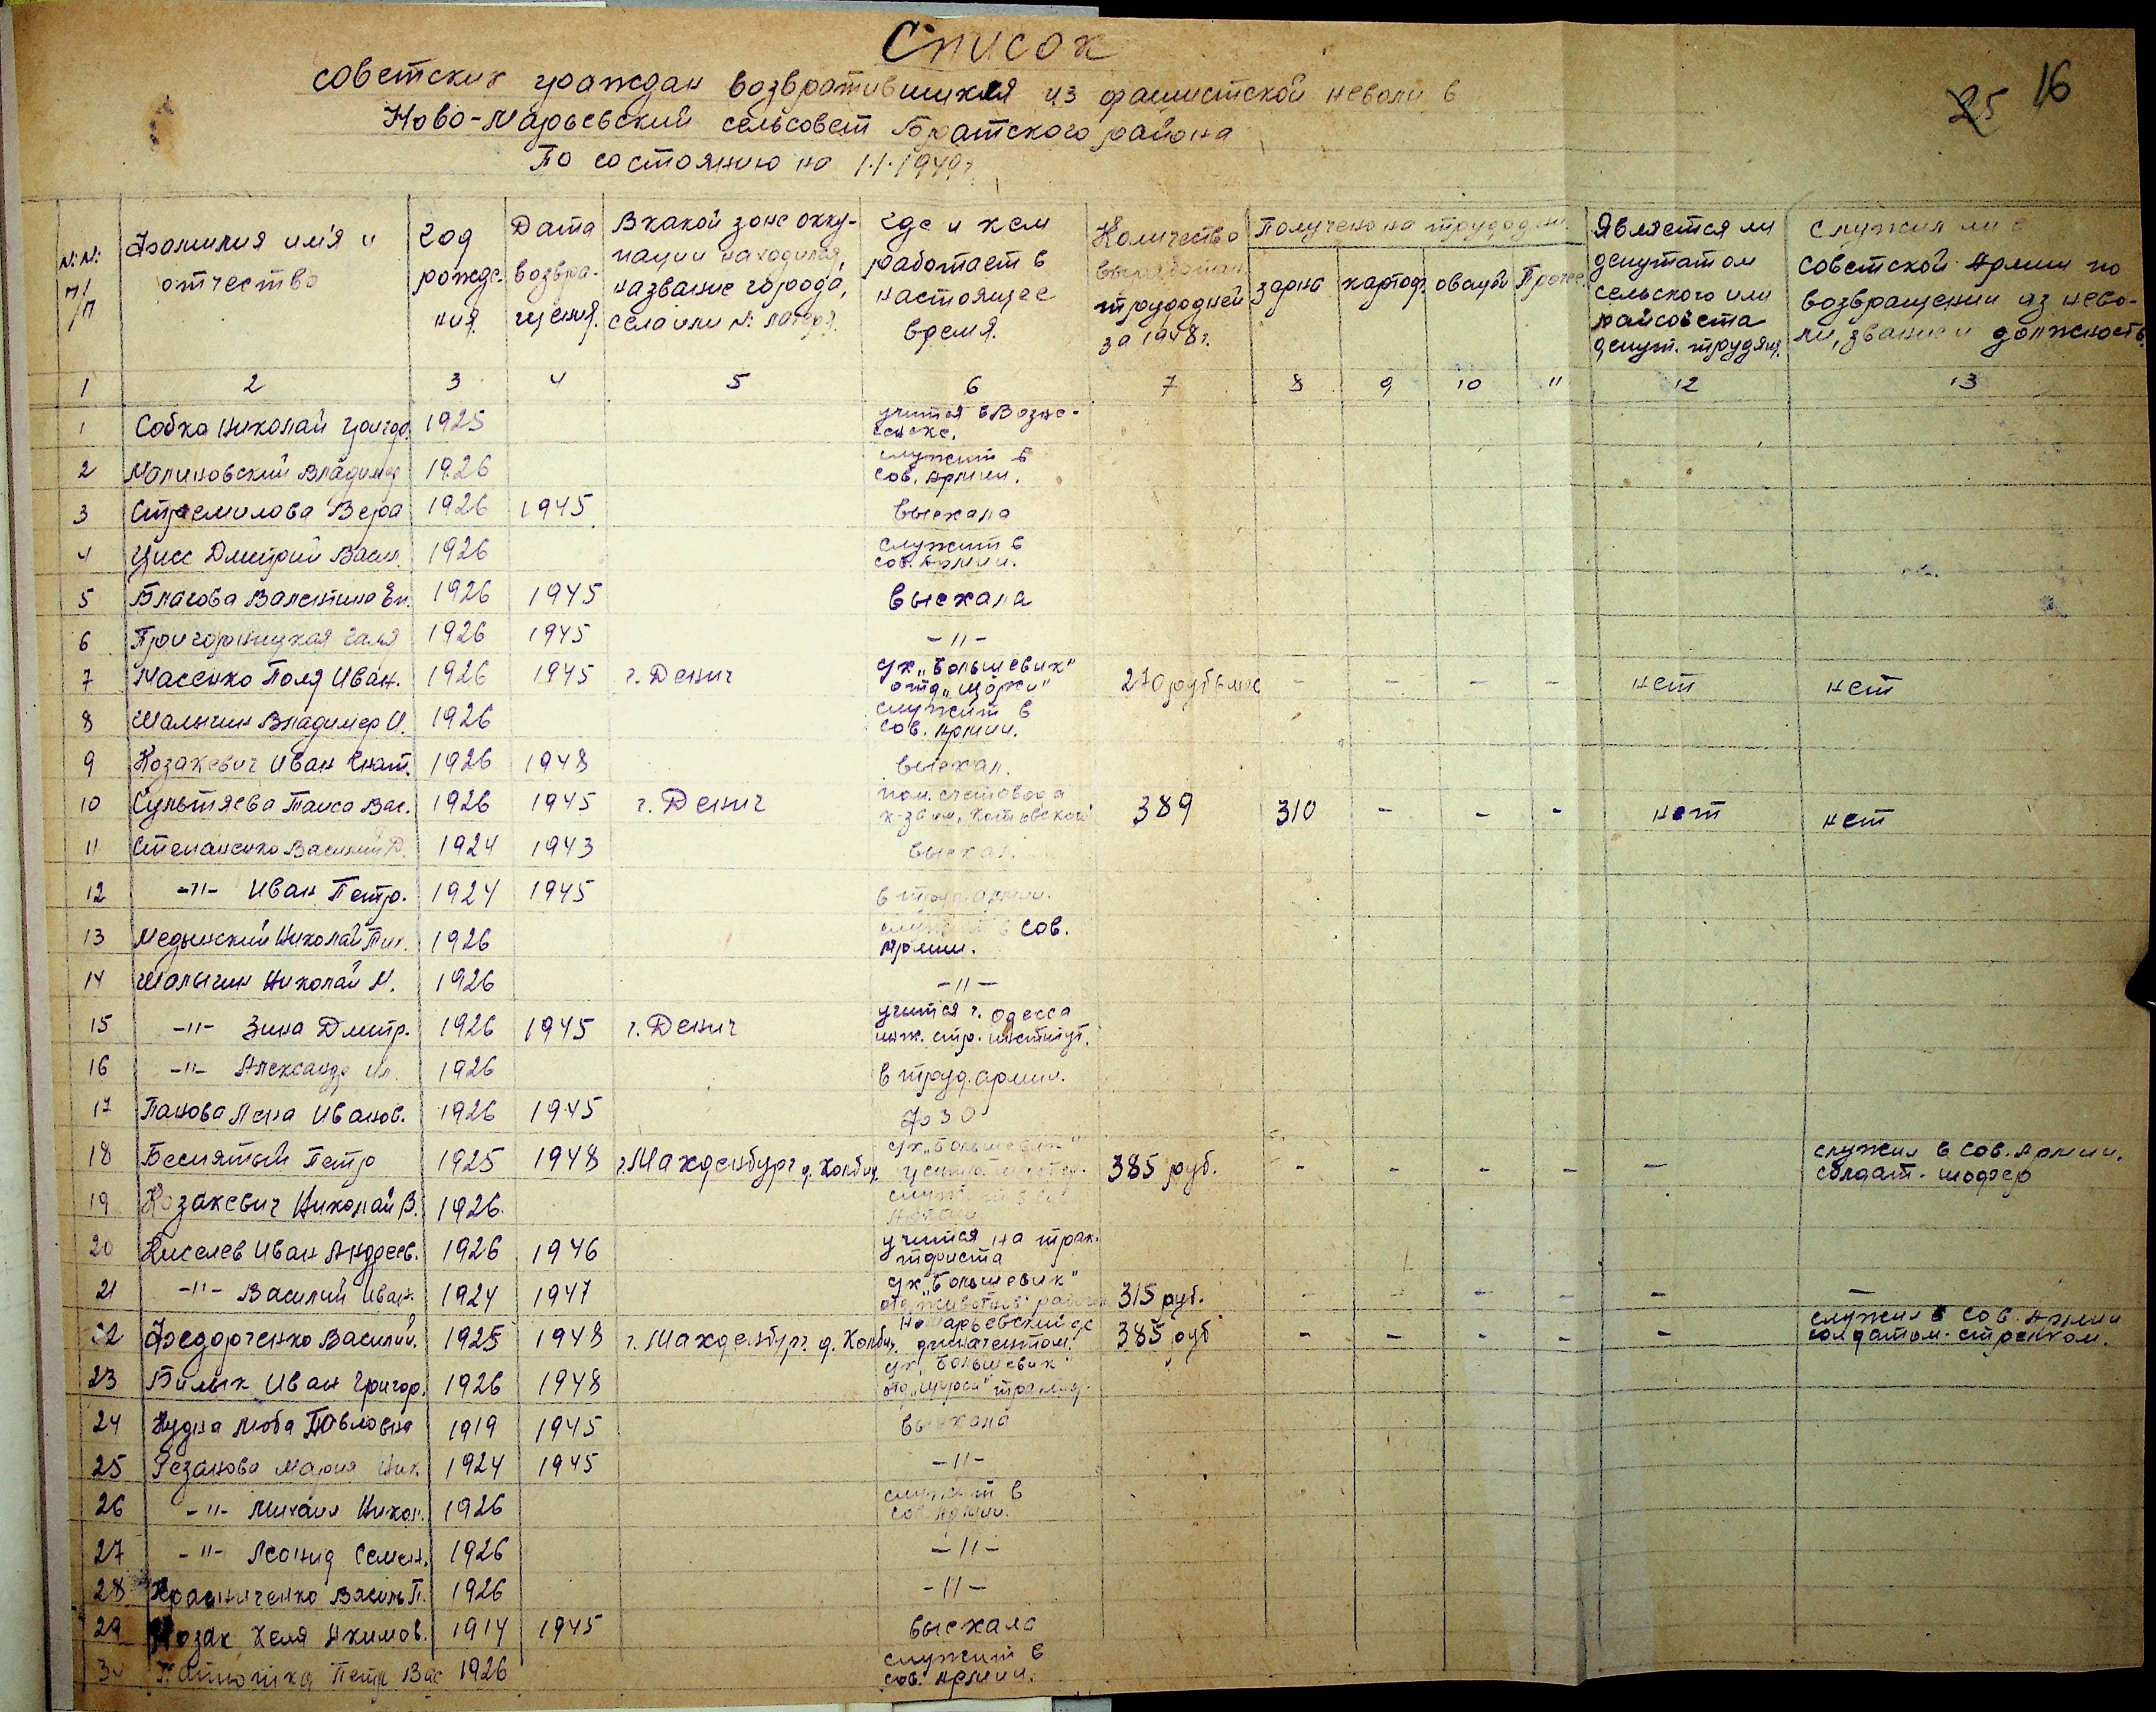 Список
советских граждан возвратившихся из фашистской неволи в
Ново-Марьевский сельсовет Братского района
По состоянию на 1.1.1949 г.
25 16
N:N: п/п | Фамилия имя и отчество | год рожде-ния | Дата возвра-щения. | В какой зоне окку-пации находился, название города, села или N: лагеря. | где и кем работает в настоящее время. | Количество выработан. трудодней за 1948 г. | Получено на трудодни: зерна | картоф. | овощей | Прочее | Является ли депутатом сельского или райсовета депут. трудящ. | Служил ли в советской Армии по возвращении из нево-ли, звание и должность.
1 2 3 4 5 6 7 8 9 10 11 12 13
1 Собка Николай Григор. 1925 учится в Возне-сенске.
2 Малиновский Владимир 1926 служит в сов. Армии.
3 Стремилова Вера 1926 1945 выехала
4 Цисс Дмитрий Васил. 1926 служит в сов. Армии.
5 Благова Валентина Ем. 1926 1945 выехала
6 Григорницкая Галя 1926 1945 -"-
7 Масенко Поля Иван. 1926 1945 г. Дениг с/х "Большевик" отд. "Щорси" 270 руб в мес - - - - нет нет
8 Шалыгин Владимер И. 1926 служит в сов. Армии.
9 Козакевич Иван Игнат. 1926 1948 выехал.
10 Султяева Таиса Вас. 1926 1945 г. Дениг пом. счетовода к-за им. Котовского 389 310 - - - нет нет
11 Степаненко Василий Д. 1924 1943 выехал.
12 -"- Иван Петр. 1924 1945 в труд. армии.
13 Медынский Николай 1926 служит в сов. Армии.
14 Шалыгин Николай М. 1926 -"-
15 -"- Зина Дмитр. 1926 1945 г. Дениг учится г. Одесса инж. стр. институт.
16 -"- Александр Ил. 1926 в труд. армии.
17 Панова Лена Иванов. 1926 1945
18 Беспятый Петр 1925 1948 г. Магденбург д. Колбиц с/х "Большевик" 385 руб. - - - - - служил в Сов. Армии. солдат - шофер
19 Козакевич Николай В. 1926 служит в сов. Армии
20 Киселев Иван Андреев. 1926 1946 учится на трак-ториста
21 -"- Василий Иван. 1924 1947 с/х "Большевик" отд. животнов. рабочий 315 руб. - - - - -
22 Федорченко Василий. 1925 1948 г. Магденбург. д. Колбиц. Н-Марьевский с/с финагентом. 385 руб - - - - - служил в Сов. Армии солдатом - стрелком.
23 Билык Иван Григор. 1926 1948 с/х "Большевик" отд. "Щорси"
24 Нудна Люба Павловна 1919 1945 выехала
25 Резанова Мария Ник. 1924 1945 -"-
26 -"- Михаил Никол. 1926 служит в сов. Армии.
27 -"- Леонид Семен. 1926 -"-
28 Красниченко Василь П. 1926 -"-
29 Козак Хеля Акимов. 1914 1945 выехала
30 Петр Вас 1926 служит в сов. Армии.